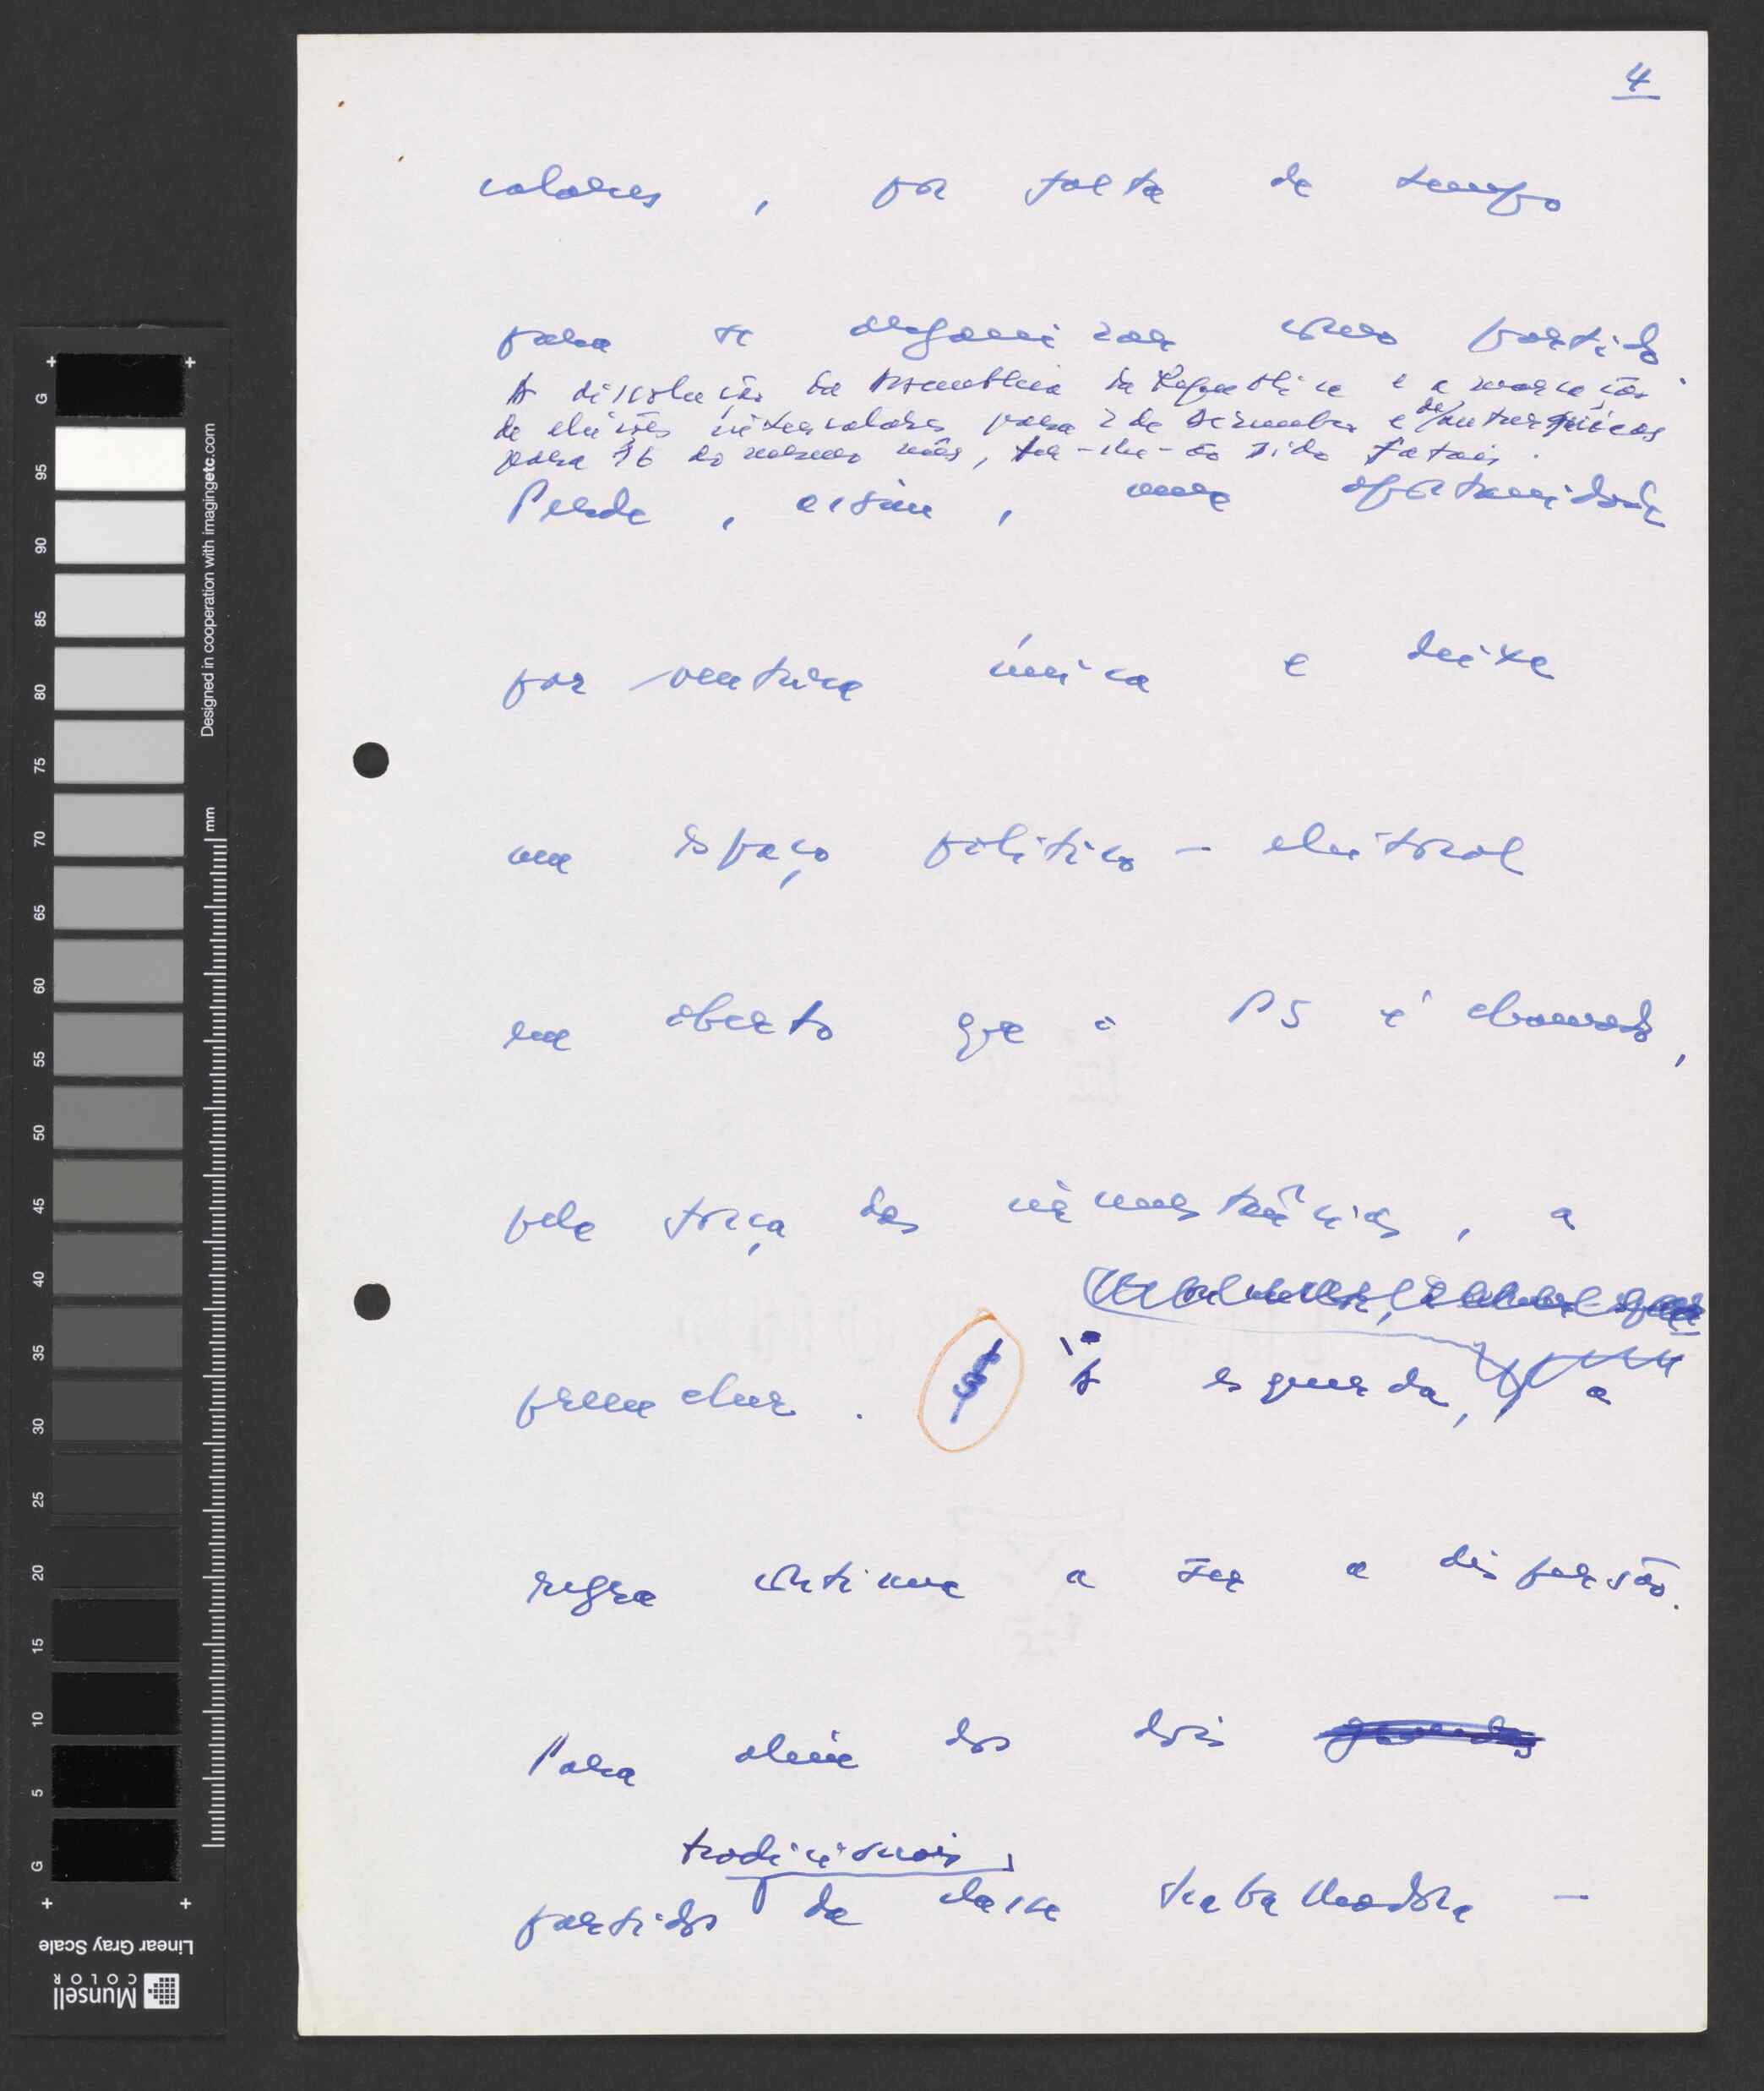 4
calares, por falta de tempo
para se organizar como partido.
A dissolução da Assembleia da República e a marcação
de eleições intercalares para 2 de Dezembro e de autárquicas
para 16 do mesmo mês, ter-lhe-ão sido fatais.
Perde, assim, uma oportunidade
porventura única e deixa
um espaço político-eleitoral
em aberto que o PS é chamado,
pela força das circunstâncias, a
preencher. § À esquerda, a
regra continua a ser a dispersão.
Para além dos dois grandes
tradicionais
partidos da classe trabalhadora -
G
95
90
85
80
75
70
65
60
55
50
45
40
35
30
25
20
15
10
5
G
mm
Designed in cooperation with imagingetc.com
Linear Gray Scale
Munsell
COLOR